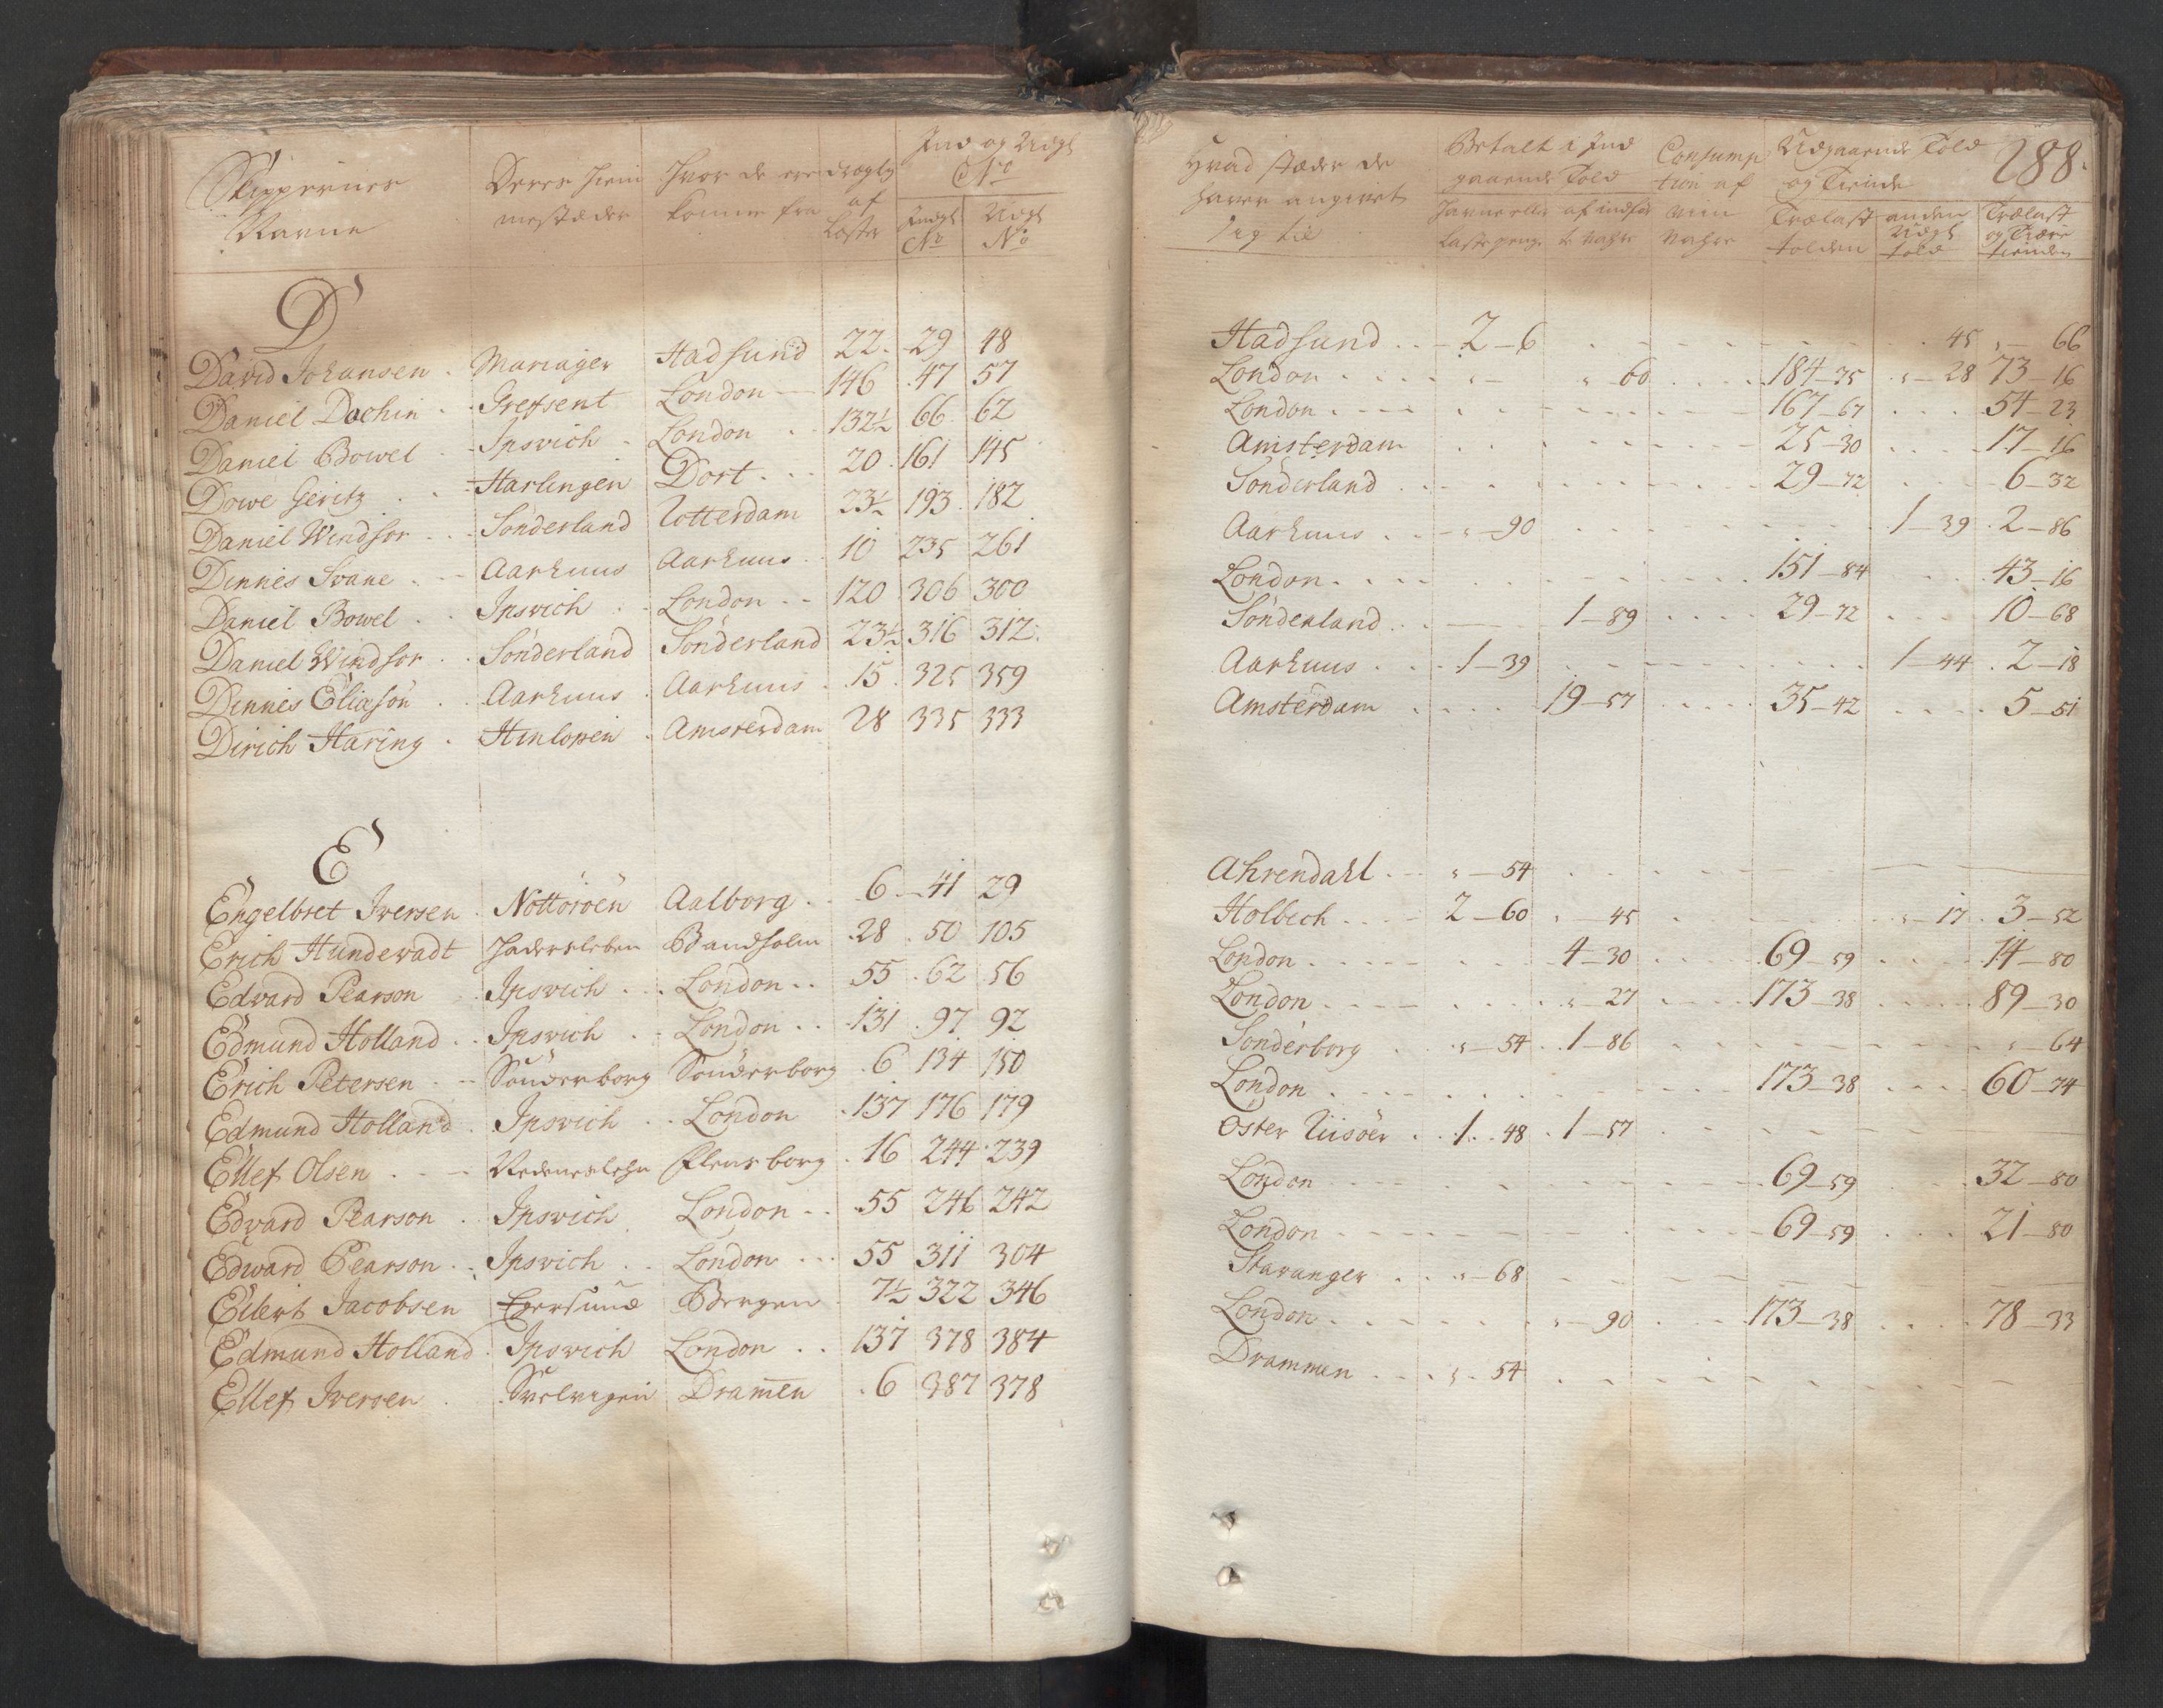 Skippernes Navne
Deres Hiemmestæder
Hvor de ere komne fra
drægtig af Læster
Ind og Udgl No
Indgl No
Udgl No
D
David Johansen . Mariager Hadsund 22. 29 48
Daniel Dochin . . Grefsent London 146 47 57
Daniel Bowel . . Ipsvich . London . . 132½ 66 62
Dowe Geritz . . Harlingen Dort . . . 20 161 145
Daniel Windsor . . . Sönderland Rotterdam 23½ 193 182
Dinnes Svane . . Aarhuus Aarhuus . . 10 235 261
Daniel Bowel . . Ipsvich . . London . . 120 306 300
Daniel Windsor . . Sönderland Sönderland 23½ 316 312.
Dinnes Eliasön . . Aarhuus . Aarhuus . 15 325 359
Dirich Haring . Hinlopen . Amsterdam 28 335 333
E
Engelbret Iversen . Nöttöröen Aalborg . . 6 41 29
Erich Hundevadt Hadersleben Bandholm 28 50 105
Edvard Pearson Ipsvich . . . London . . 55 62 56
Edmund Holland . . Ipsvich . . London . . 131 97 92
Erich Petersen . . Sönderborg Sönderborg 6 134 150
Edmund Holland . Ipsvich . . London 137 176 179
Ellef Olsen . . . Nedeneslehn Flensborg . 16 244 239
Edvard Pearson . Ipsvich London . . 55 246 242
Edward Pearson . . Ipsvich . . London . . . 55 311 304
Eilert Jacobsen Egersund Bergen . 7½ 322 346
Edmund Holland . Ipsvich London . . 137 378 384
Ellef Iversen . Svelvigen Dramen . 6 387 378
288.
Hvad stæder de haver angivet sig til
Betalt i Indgaaende Told
Havne eller Lastepenge
af indför te Vahre
Consumption af Vahre
Udgaaende Told og Tiende
Trælast tolden
anden Udgl told
Trælast og Tiære tienden
Hadsund . . 2-6 . . . 45 „- 66
London . . . . „- „-60 . . . 184-75 „-28 73-16
London . . . . 167-67 . . . 54-23
Amsterdam . . . 25-30 . . . 17-16
Sönderland . . . 29-72 . . . 6-32
Aarhuus . . „-90 . . . 1-39 . 2-86
London . . . . 151-84 . . . 43-16
Sönderland . . 1-89 . . . 29-72 . . . 10-68
Aarhuus . . . 1-39 . . . 1-44 . 2-18
Amsterdam . . . . 19-57 . . . 35-42 . . . 5-51
Ahrendahl . . „-54 . . .
Holbech . . . 2-60 „-45 . . . „-17 . 3-52
London . . . . 4-30 . . . 69-59 . . . 14-80
London . . . . „-27 . . . 173-38 . . . 89-30
Sonderborg . . „-54 . 1-86 . . . „-64
London . . . . 173-38 . . . 60-74
Öster Riisöer . . 1-48 . 1-57 . . .
London . . . 69-59 . . . 32-80
London . . . 69-59 . . . 21-80
Stavanger . . . „-68 . . .
London . . . . „-90 . . . 173-38 . . . 78-33
Drammen . . . „-54 . . .